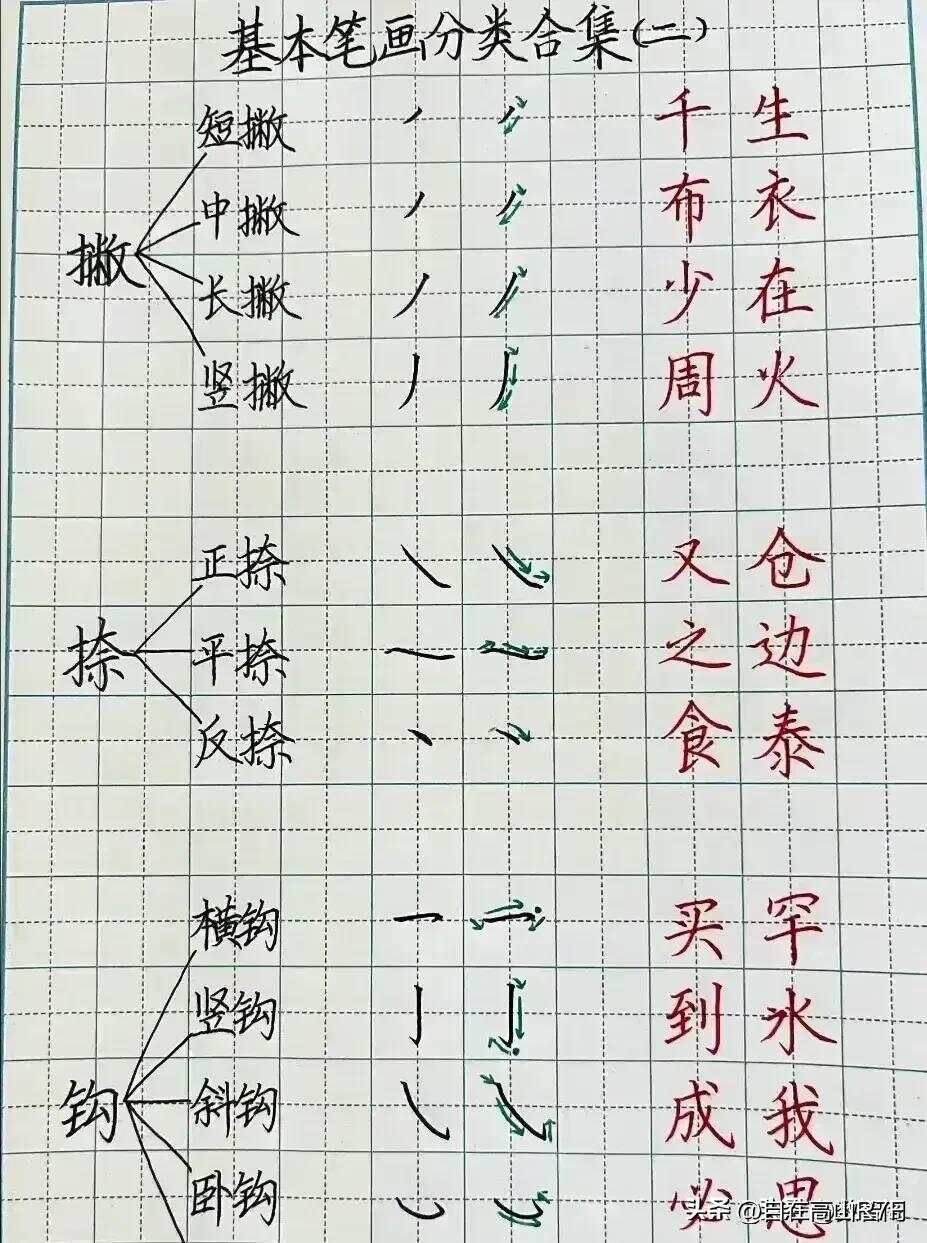 基本笔画分类合集(二)
撇
短撇 千 生
中撇 布 衣
长撇 少 在
竖撇 周 火
捺
正捺 又 仓
平捺 之 边
反捺 食 泰
钩
横钩 买 罕
竖钩 到 水
斜钩 成 我
卧钩 必 思
头条 @